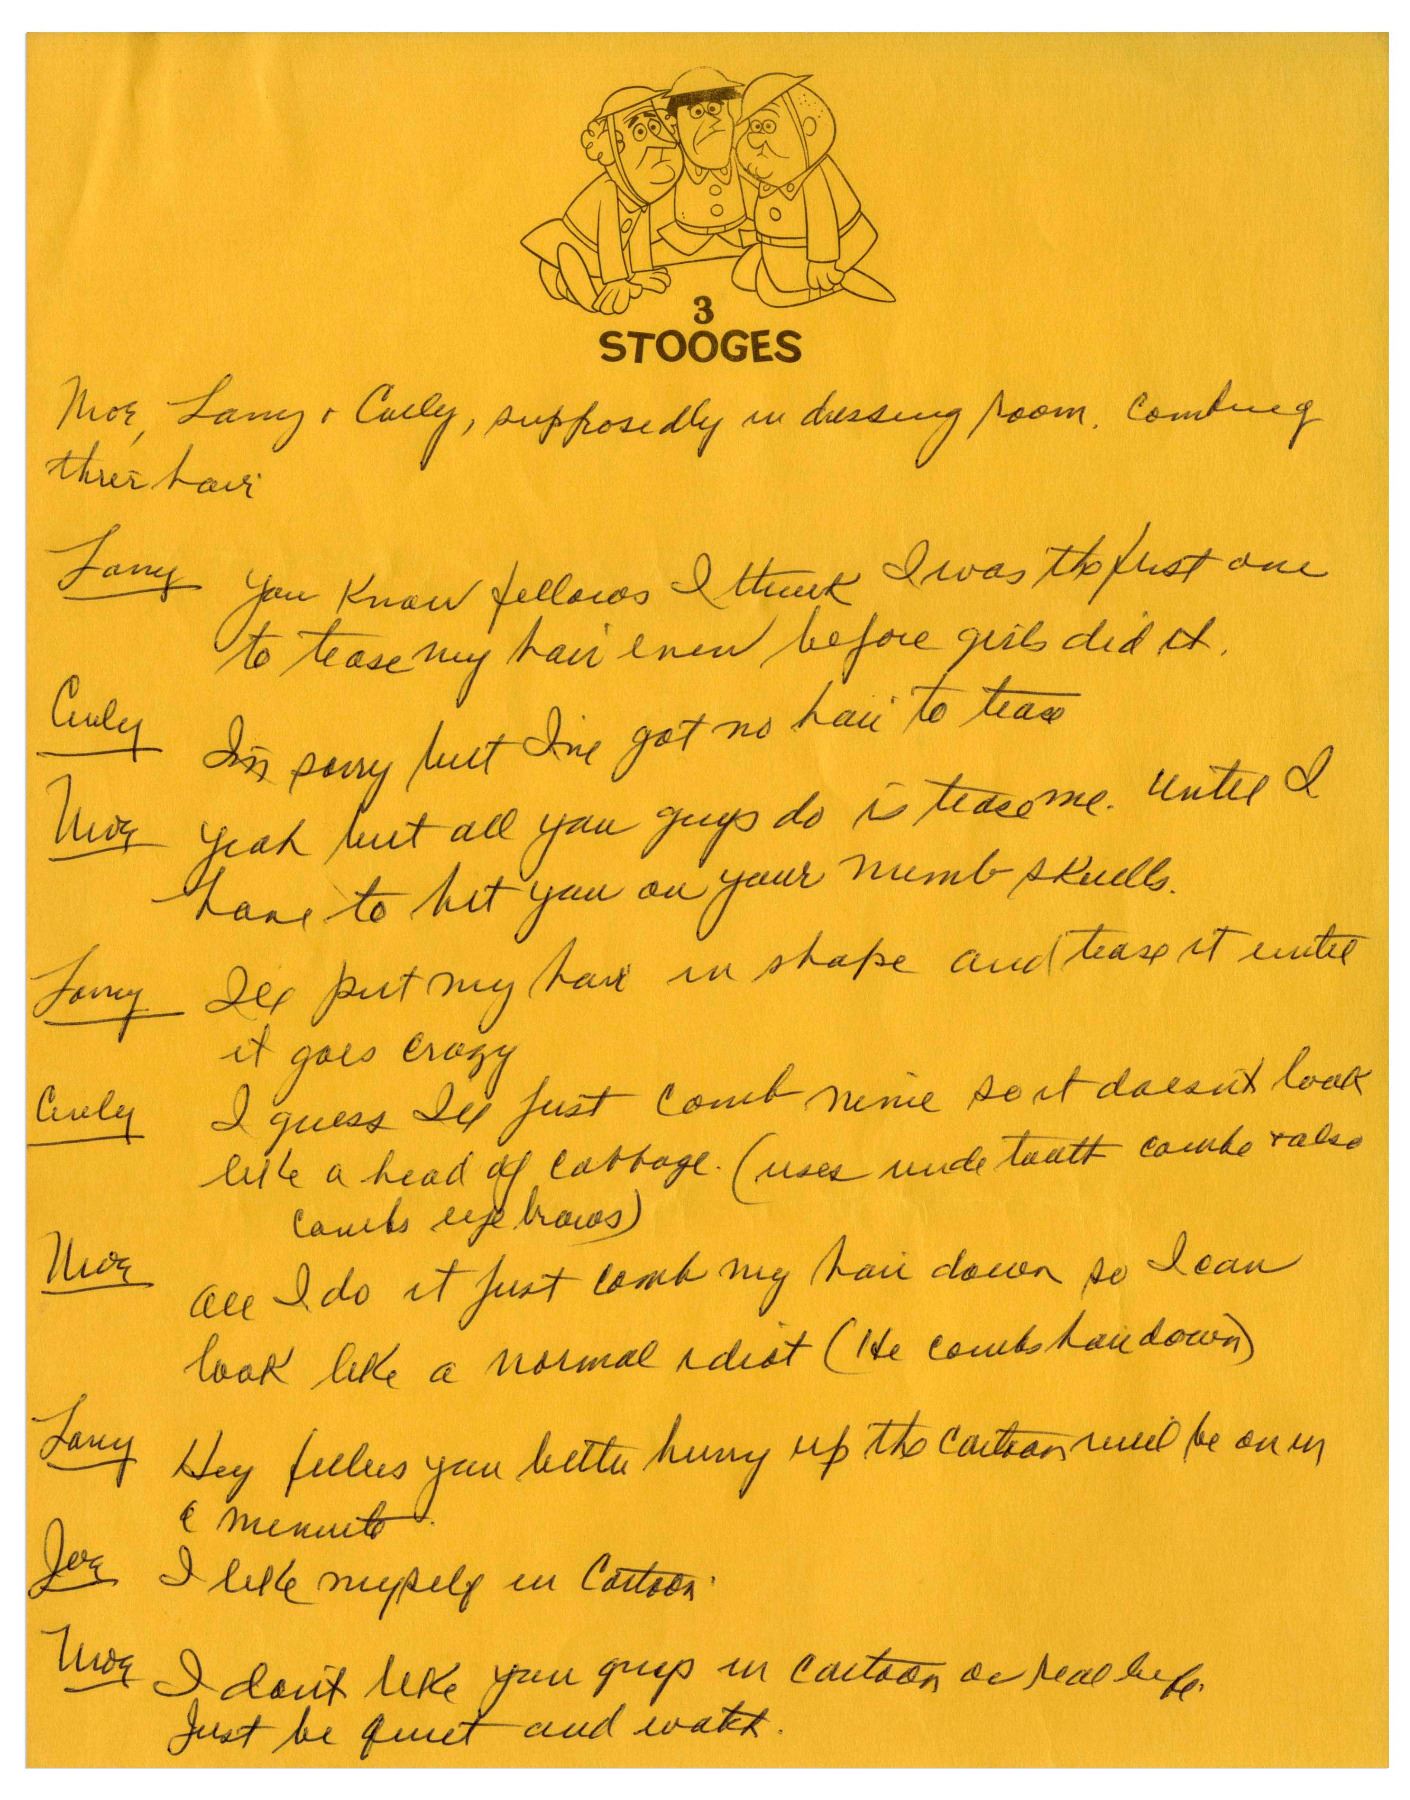 3
STOOGES
Moe, Larry + Curly, supposedly in dressing room. combing
their hair
Larry You Know fellows I think I was the first one
to tease my hair even before girls did it.
Curly I'm sorry but I've got no hair to tease
Moe Yeah but all you guys do is tease me. Until I
have to hit you on your numb skulls.
Larry I'll put my hair in shape and tease it until
it goes crazy
Curly I guess I'll just comb mine so it doesn't look
like a head of cabbage. (uses wide tooth combe + also
combs eye brows)
Moe All I do it just comb my hair down so I can
look like a normal idiot (He combs hair down)
Larry Hey fellers you better hurry up the cartoon will be on in
a minute.
Joe I like myself in Cartoon.
Moe I don't like you guys in cartoon or real life.
Just be quiet and watch.